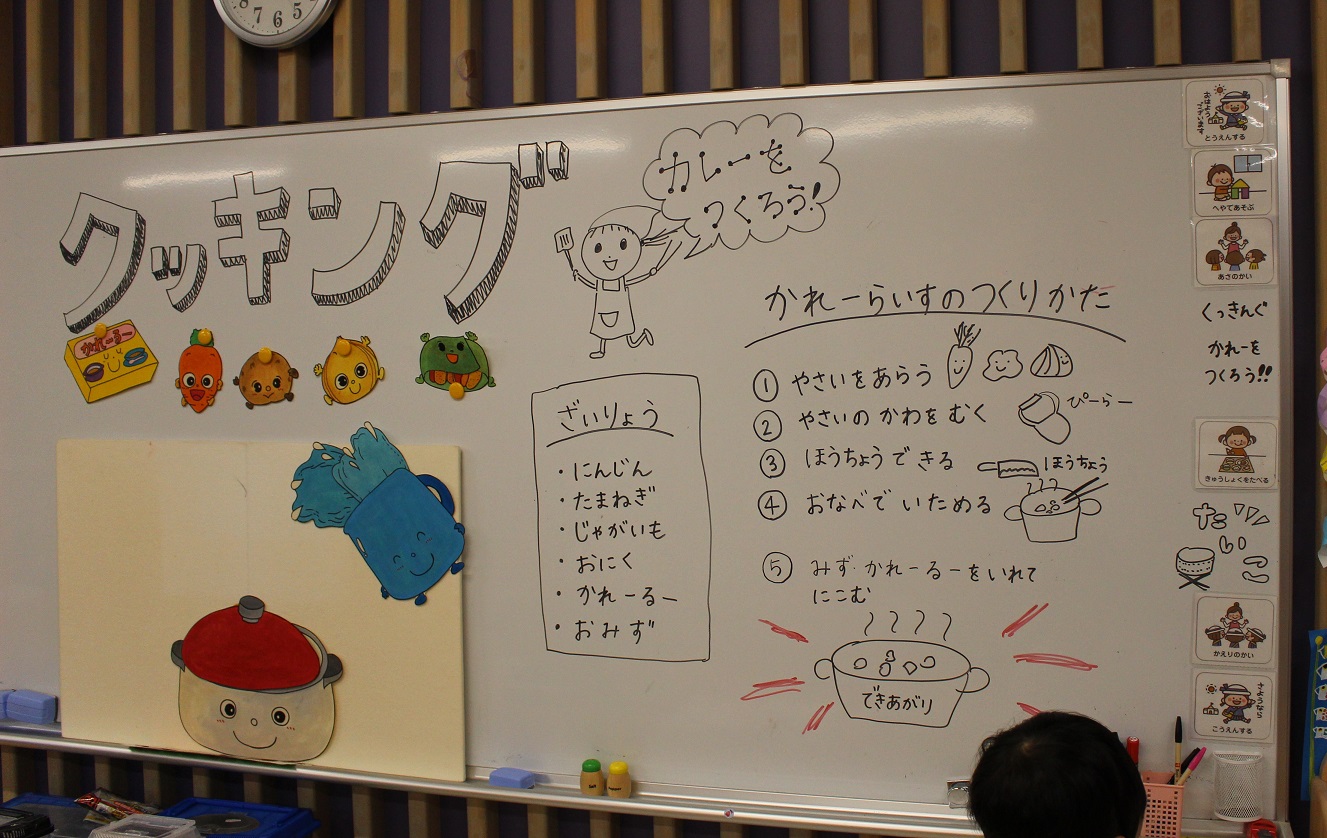 8 7 6 5 4
クッキング
カレーを
つくろう!
かれーるー
かれーらいすのつくりかた
① やさいをあらう
② やさいの かわを むく
ぴーらー
③ ほうちょうで きる
ほうちょう
④ おなべで いためる
⑤ みず・かれーるーをいれて
にこむ
できあがり
ざいりょう
・にんじん
・たまねぎ
・じゃがいも
・おにく
・かれーるー
・おみず
おはよう
ございます
とうえんする
へやであそぶ
あさのかい
くっきんぐ
かれーを
つくろう!!
きゅうしょくをたべる
たいこ
かえりのかい
さようなら
こうえんする